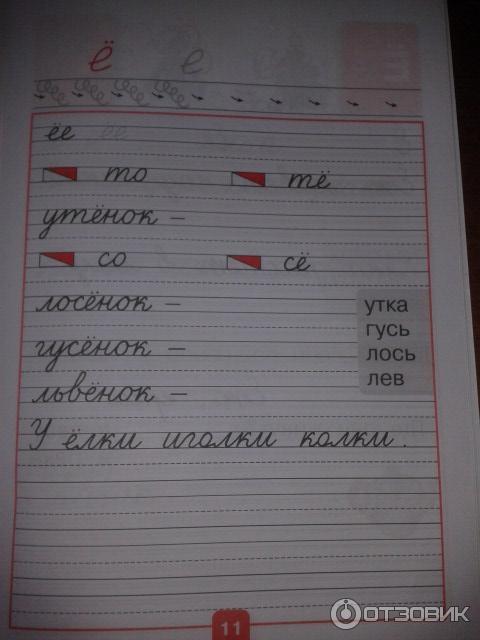 ё е
ёе ёе
то тё
утёнок –
со сё
лосёнок –
гусёнок –
львёнок –
У ёлки иголки колки.
утка
гусь
лось
лев
11
ОТЗОВИК